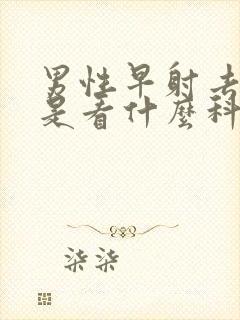 男性早射去
是看什麼科
柒柒